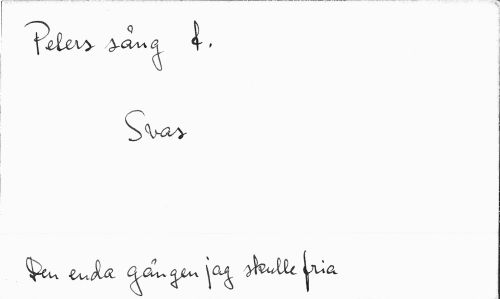 Peters sång 1.
Svas
Den enda gången jag skulle fria